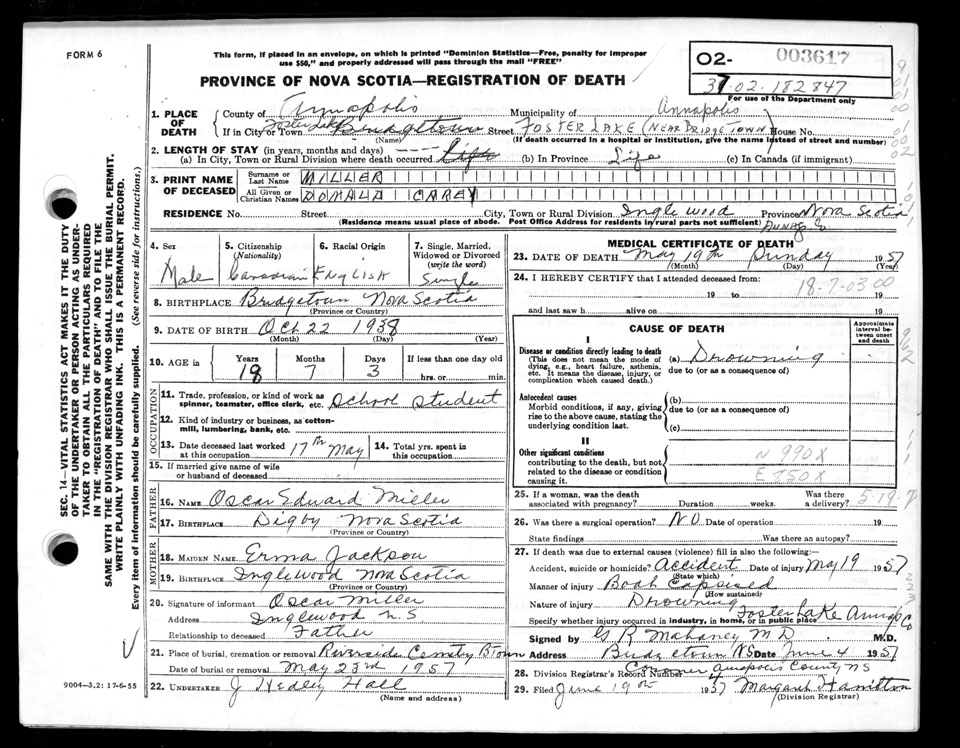 FORM 6
This form, if placed in an envelope, on which is printed "Dominion Statistics—Free, penalty for improper
use $50," and properly addressed will pass through the mail "FREE"
O2- 003617
37-02-182847
For use of the Department only
PROVINCE OF NOVA SCOTIA—REGISTRATION OF DEATH
1. PLACE OF DEATH
County of Annapolis Municipality of Annapolis
If in City or Town Foster Lake Bridgetown Street FOSTER LAKE (NEAR BRIDGETOWN) House No.
(Name) (If death occurred in a hospital or institution, give the name instead of street and number)
2. LENGTH OF STAY (in years, months and days)
(a) In City, Town or Rural Division where death occurred Life (b) In Province Life (c) In Canada (if immigrant)
3. PRINT NAME OF DECEASED
Surname or Last Name MILLER
All Given or Christian Names DONALD CAREY
RESIDENCE No. Street City, Town or Rural Division Inglewood Province Nova Scotia
(Residence means usual place of abode. Post Office Address for residents in rural parts not sufficient) Annap Co.
4. Sex Male
5. Citizenship (Nationality) Canadian
6. Racial Origin English
7. Single, Married, Widowed or Divorced (write the word) Single
8. BIRTHPLACE Bridgetown Nova Scotia
(Province or Country)
9. DATE OF BIRTH Oct 22 1938
(Month) (Day) (Year)
10. AGE in Years Months Days If less than one day old
18 7 3 hrs. or min.
OCCUPATION
11. Trade, profession, or kind of work as spinner, teamster, office clerk, etc. School Student
12. Kind of industry or business, as cotton-mill, lumbering, bank, etc.
13. Date deceased last worked at this occupation 17th May
14. Total yrs. spent in this occupation
15. If married give name of wife or husband of deceased
FATHER
16. NAME Oscar Edward Miller
17. BIRTHPLACE Digby Nova Scotia
(Province or Country)
MOTHER
18. MAIDEN NAME Erma Jackson
19. BIRTHPLACE Inglewood Nova Scotia
(Province or Country)
20. Signature of informant Oscar Miller
Address Inglewood N.S
Relationship to deceased Father
21. Place of burial, cremation or removal Riverside Cemetry BTown
Date of burial or removal May 23rd 1957
22. UNDERTAKER J Hedley Hall
(Name and address)
MEDICAL CERTIFICATE OF DEATH
23. DATE OF DEATH May 19th Sunday 1957
(Month) (Day) (Year)
24. I HEREBY CERTIFY that I attended deceased from:
18-7-0300
19 to 19
and last saw h alive on 19
CAUSE OF DEATH
Approximate interval between onset and death
I
Disease or condition directly leading to death (a) Drowning
(This does not mean the mode of dying, e.g., heart failure, asthenia, etc. It means the disease, injury, or complication which caused death.)
due to (or as a consequence of)
Antecedent causes
Morbid conditions, if any, giving rise to the above cause, stating the underlying condition last.
(b)
due to (or as a consequence of)
(c)
II
Other significant conditions
contributing to the death, but not related to the disease or condition causing it.
N 990X
E 850X
25. If a woman, was the death associated with pregnancy? Duration weeks. Was there a delivery?
5-19-7
26. Was there a surgical operation? NO Date of operation 19
State findings Was there an autopsy?
27. If death was due to external causes (violence) fill in also the following:—
Accident, suicide or homicide? Accident Date of injury May 19 1957
(State which)
Manner of injury Boat Capsised
(How sustained)
Nature of injury Drowning
Foster Lake Annap Co
Specify whether injury occurred in industry, in home, or in public place
Signed by G R Mahaney MD M.D.
Address Bridgetown NS Date June 4 1957
Coroner Annapolis County NS
28. Division Registrar's Record Number 4
29. Filed June 19th 1957 Margaret Hamilton
(Division Registrar)
SEC. 14—VITAL STATISTICS ACT MAKES IT THE DUTY
OF THE UNDERTAKER OR PERSON ACTING AS UNDER-
TAKER TO OBTAIN ALL THE PARTICULARS REQUIRED
IN THE "REGISTRATION OF DEATH" AND TO FILE THE
SAME WITH THE DIVISION REGISTRAR WHO SHALL ISSUE THE BURIAL PERMIT.
WRITE PLAINLY WITH UNFADING INK. THIS IS A PERMANENT RECORD.
Every item of information should be carefully supplied. (See reverse side for instructions.)
9004-3.2: 17-6-55